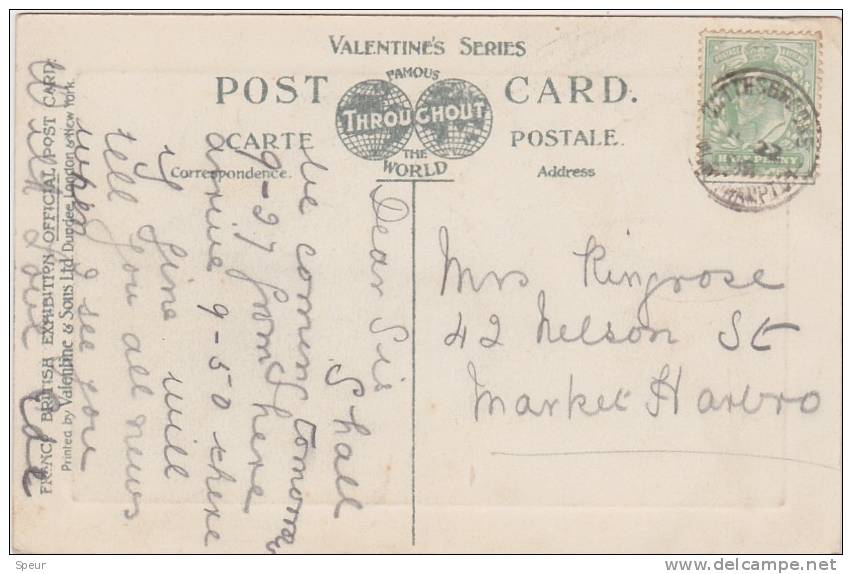 VALENTINE'S SERIES
POST CARD.
FAMOUS
THROUGHOUT
THE
WORLD
CARTE POSTALE.
Correspondence.
Address
Dear Sis
Shall
be coming tomorrow
9-27 from here
arrive 9-50 there
if fine will
tell you all news
when I see you
with love
FRANCO BRITISH EXHIBITION OFFICIAL POST CARD.
Printed by Valentine & Sons Ltd. Dundee, London & New York.
Mrs Ringrose
42 Nelson St
Market Harbro
22
HALFPENNY
Speur
delcampe.net